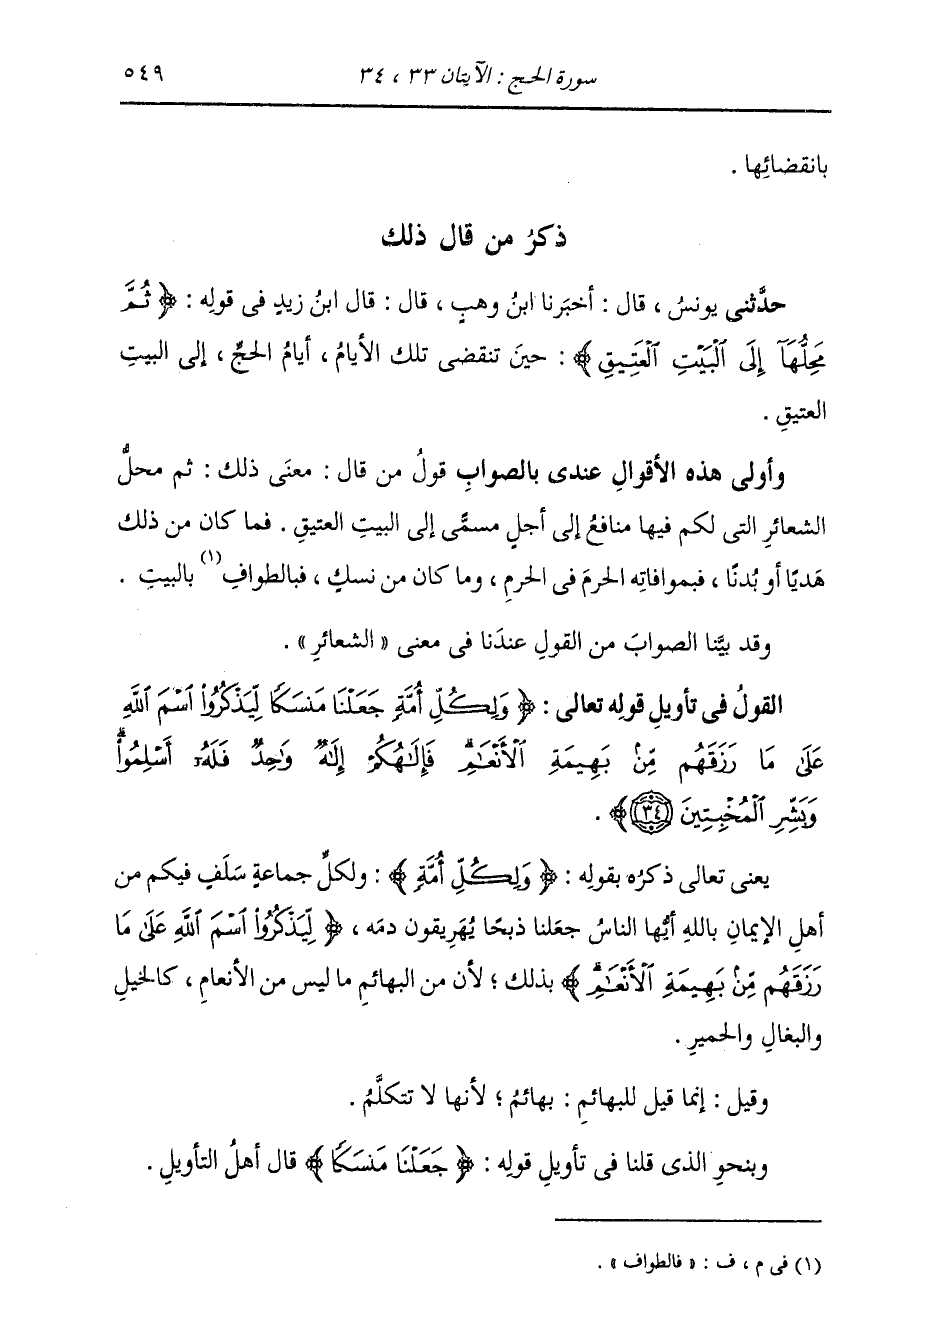 سورة الحج : الآيتان ٣٣ ، ٣٤ ٥٤٩
بانقضائِها .
ذكرُ من قال ذلك
حدَّثنى يونسُ ، قال : أخبَرنا ابنُ وهبٍ ، قال : قال ابنُ زيدٍ فى قولِه : ﴿ ثُمَّ
مَحِلُّهَآ إِلَى ٱلْبَيْتِ ٱلْعَتِيقِ ﴾ : حينَ تنقضى تلك الأيامُ ، أيامُ الحجِّ ، إلى البيتِ
العتيقِ .
وأولى هذه الأقوالِ عندى بالصوابِ قولُ من قال : معنَى ذلك : ثم محلُّ
الشعائرِ التى لكم فيها منافعُ إلى أجلٍ مسمًّى إلى البيتِ العتيقِ . فما كان من ذلك
هَديًا أو بُدنًا ، فبموافاتِه الحرمَ فى الحرمِ ، وما كان من نسكٍ ، فبالطوافِ(١) بالبيتِ .
وقد بيَّنا الصوابَ من القولِ عندَنا فى معنى « الشعائرِ » .
القولُ فى تأويلِ قولِه تعالى : ﴿ وَلِكُلِّ أُمَّةٍ جَعَلْنَا مَنسَكًا لِّيَذْكُرُوا۟ ٱسْمَ ٱللَّهِ
عَلَىٰ مَا رَزَقَهُم مِّنۢ بَهِيمَةِ ٱلْأَنْعَٰمِۗ فَإِلَٰهُكُمْ إِلَٰهٌ وَٰحِدٌ فَلَهُۥٓ أَسْلِمُوا۟ۗ
وَبَشِّرِ ٱلْمُخْبِتِينَ ٣٤ ﴾ .
يعنى تعالى ذكرُه بقولِه : ﴿ وَلِكُلِّ أُمَّةٍ ﴾ : ولكلِّ جماعةٍ سَلَفٍ فيكم من
أهلِ الإيمانِ باللهِ أيُّها الناسُ جعَلنا ذبحًا يُهَرِيقون دمَه ، ﴿ لِّيَذْكُرُوا۟ ٱسْمَ ٱللَّهِ عَلَىٰ مَا
رَزَقَهُم مِّنۢ بَهِيمَةِ ٱلْأَنْعَٰمِۗ ﴾ بذلك ؛ لأن من البهائمِ ما ليس من الأنعامِ ، كالخيلِ
والبغالِ والحميرِ .
وقيل : إنما قيل للبهائمِ : بهائمُ ؛ لأنها لا تتكلَّمُ .
وبنحوِ الذى قلنا فى تأويلِ قولِه : ﴿ جَعَلْنَا مَنسَكًا ﴾ قال أهلُ التأويلِ .
(١) فى م ، ف : « فالطواف » .